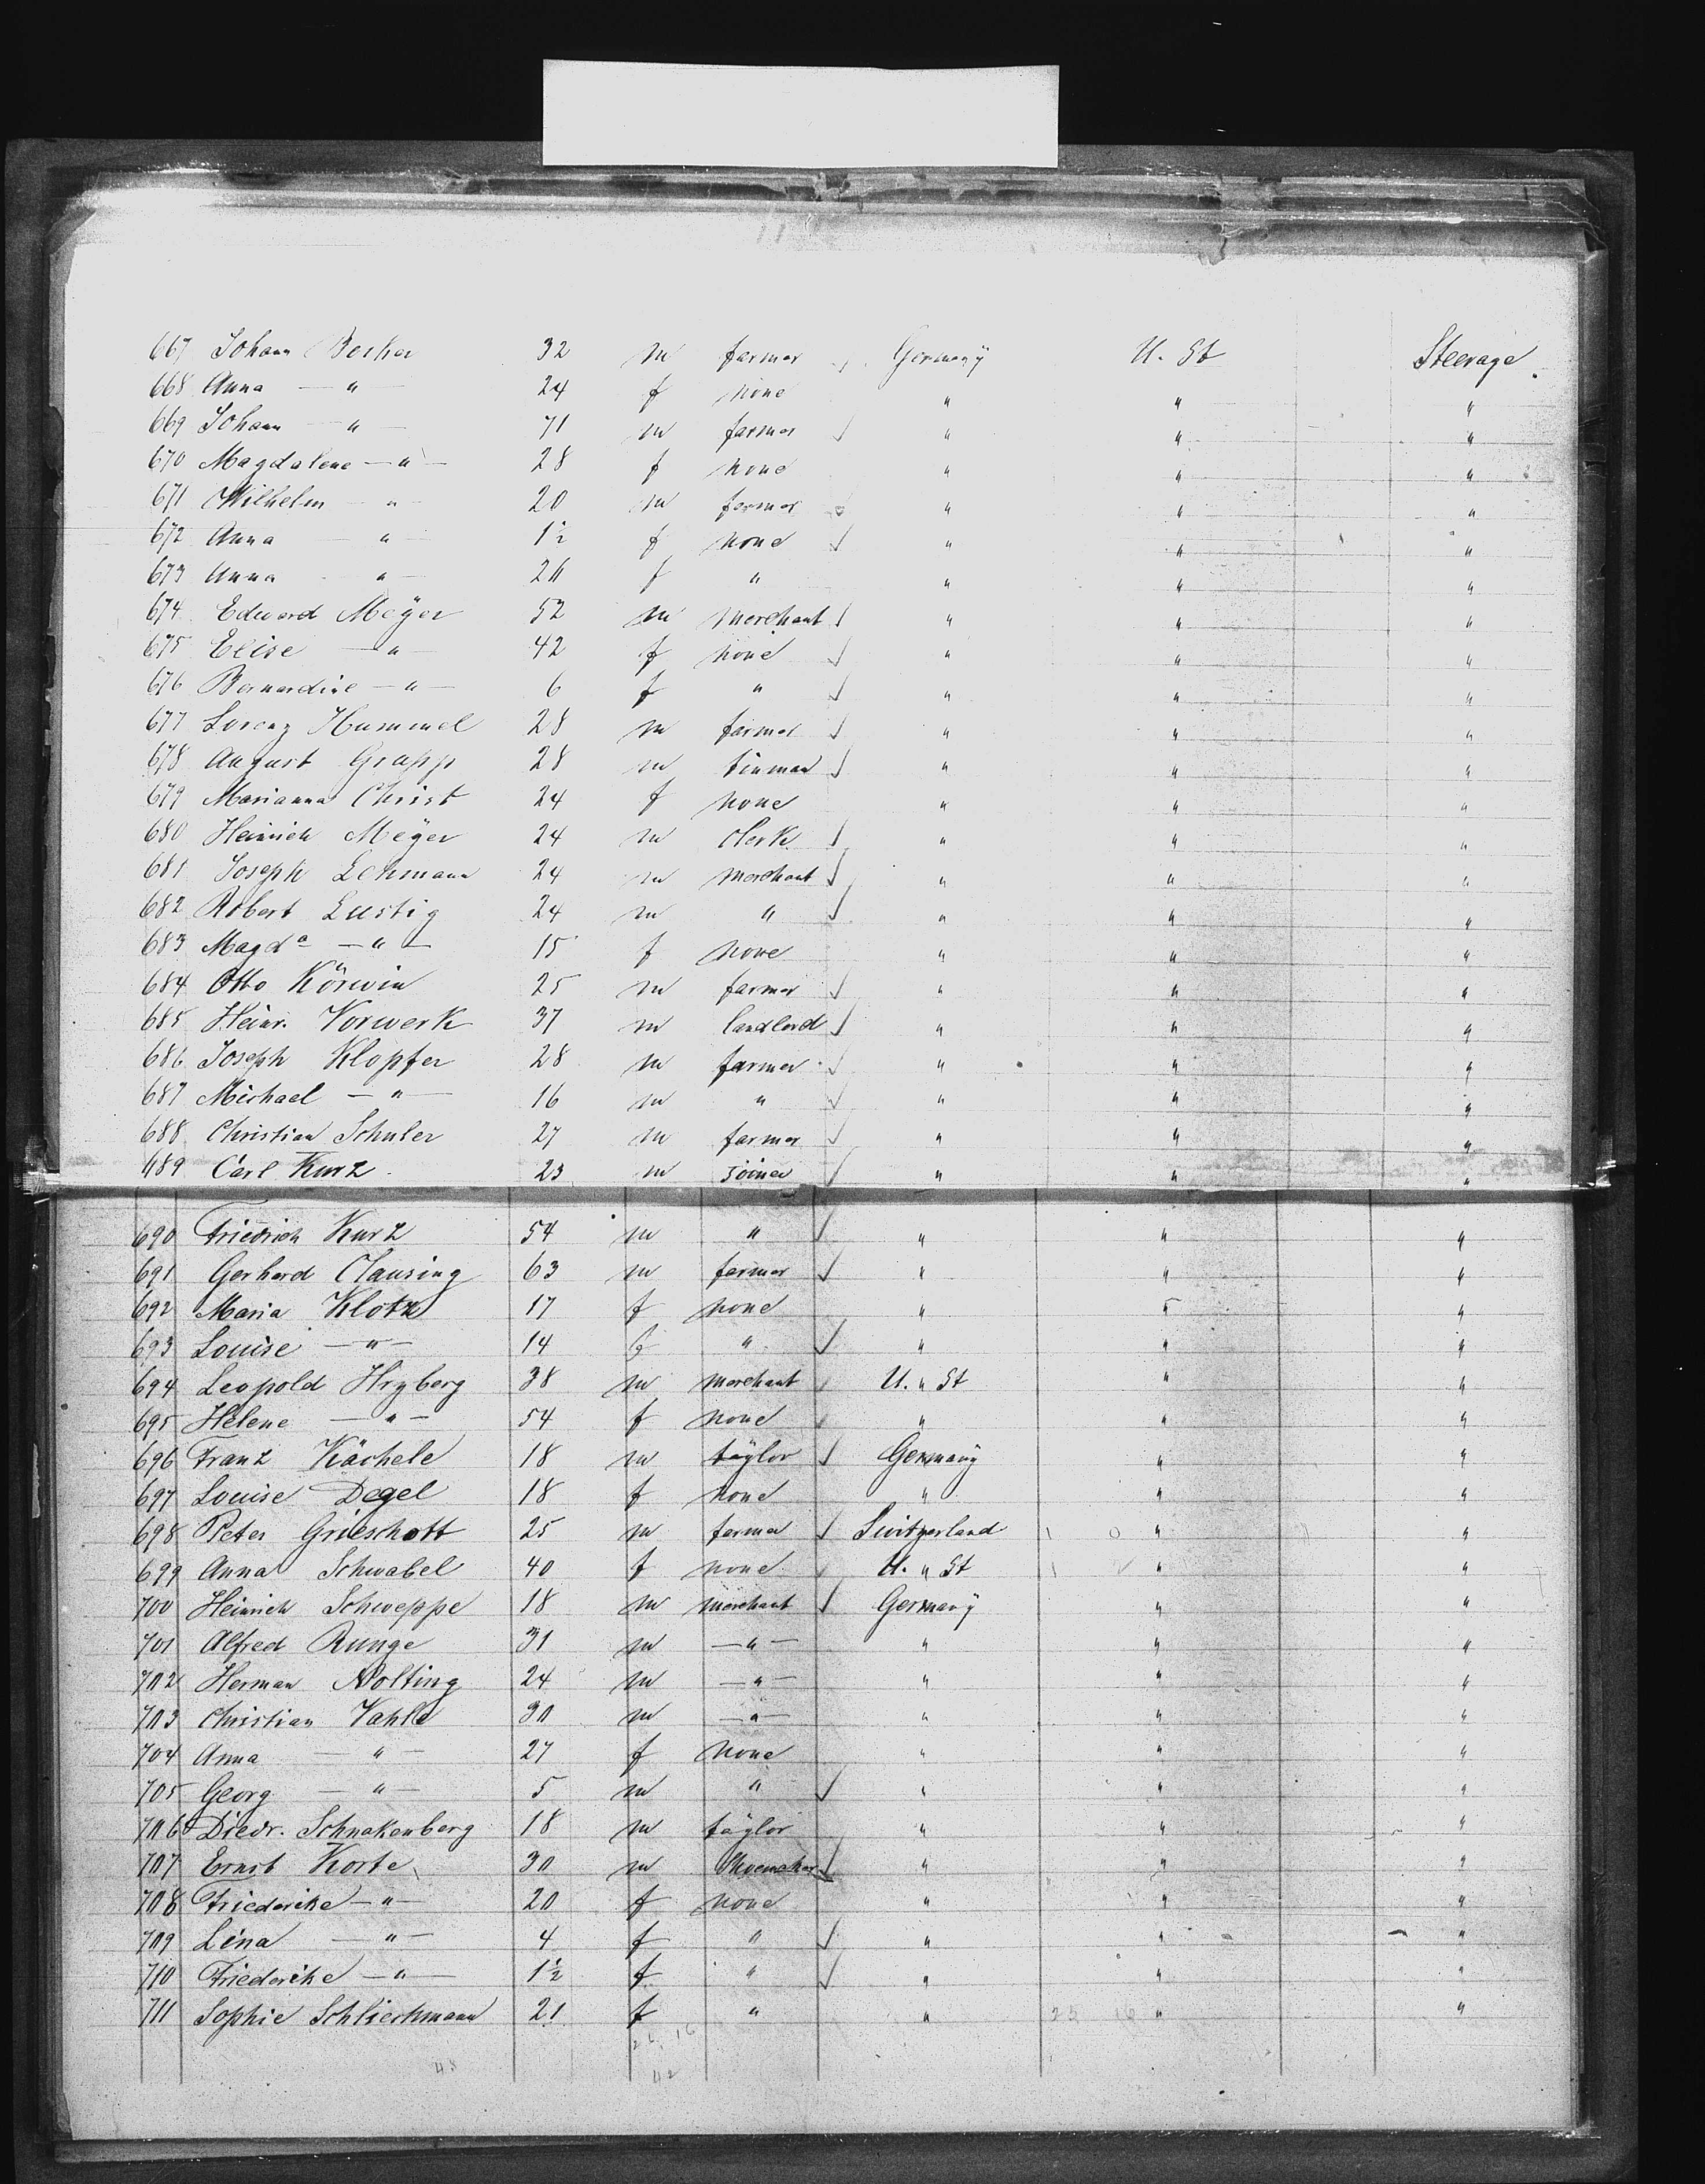 667 Johann Becker 32 m farmer Germany U. St Steerage
668 Anna — " — 24 f none " " "
669 Johann — " — 71 m farmer " " "
670 Magdalene — " — 28 f none " " "
671 Wilhelm — " — 20 m farmer " " "
672 Anna — " — 1½ f none " " "
673 Anna — " — f " " " "
674 Edward Meÿer 52 m merchant " " "
675 Elise — " — 42 f none " " "
676 Bernardine — " — 6 f " " " "
677 Lorenz Hummel 28 m farmer " " "
678 August Grapp 28 m tinman " " "
679 Marianna Christ 24 f none " " "
680 Heinrich Meÿer 24 m Clerk " " "
681 Joseph Lehmann 24 m merchant " " "
682 Robert Lustig 24 m " " " "
683 Magda — " — 15 f none " " "
684 Otto Körwin 25 m farmer " " "
685 Heinr. Vorwerk 37 m landlord " " "
686 Joseph Klopfer 28 m farmer " " "
687 Michael — " — 16 m " " " "
688 Christian Schuler 27 m farmer " " "
689 Carl Kurz 23 m joiner " " "
690 Friedrich Kurz 54 m " " " "
691 Gerhard Clausing 63 m farmer " " "
692 Maria Klotz 17 f none " " "
693 Louise — " — 14 f " " " "
694 Leopold 38 m merchant U. " St " "
695 Helene — " — 54 f none " " "
696 Franz Kächele 18 m taÿlor Germanÿ " "
697 Louise Degel 18 f none " " "
698 Peter Grieschott 25 m farmer Switzerland " "
699 Anna Schwabel 40 f none U. " St " "
700 Heinrich Schweppe 18 m merchant Germanÿ " "
701 Alfred Runge 31 m — " — " " "
702 Herman Nolting 24 m — " — " " "
703 Christian Vahle 30 m — " — " " "
704 Anna — " — 27 f none " " "
705 Georg — " — 5 m " " " "
706 Diedr. Schnakenberg 18 m taÿlor " " "
707 Ernst Korte 30 m Shoemaker " " "
708 Friederike — " — 20 f none " " "
709 Lina — " — 4 f " " " "
710 Friederike — " — 1½ f " " " "
711 Sophie Schlieckmann 21 f " " " "
42